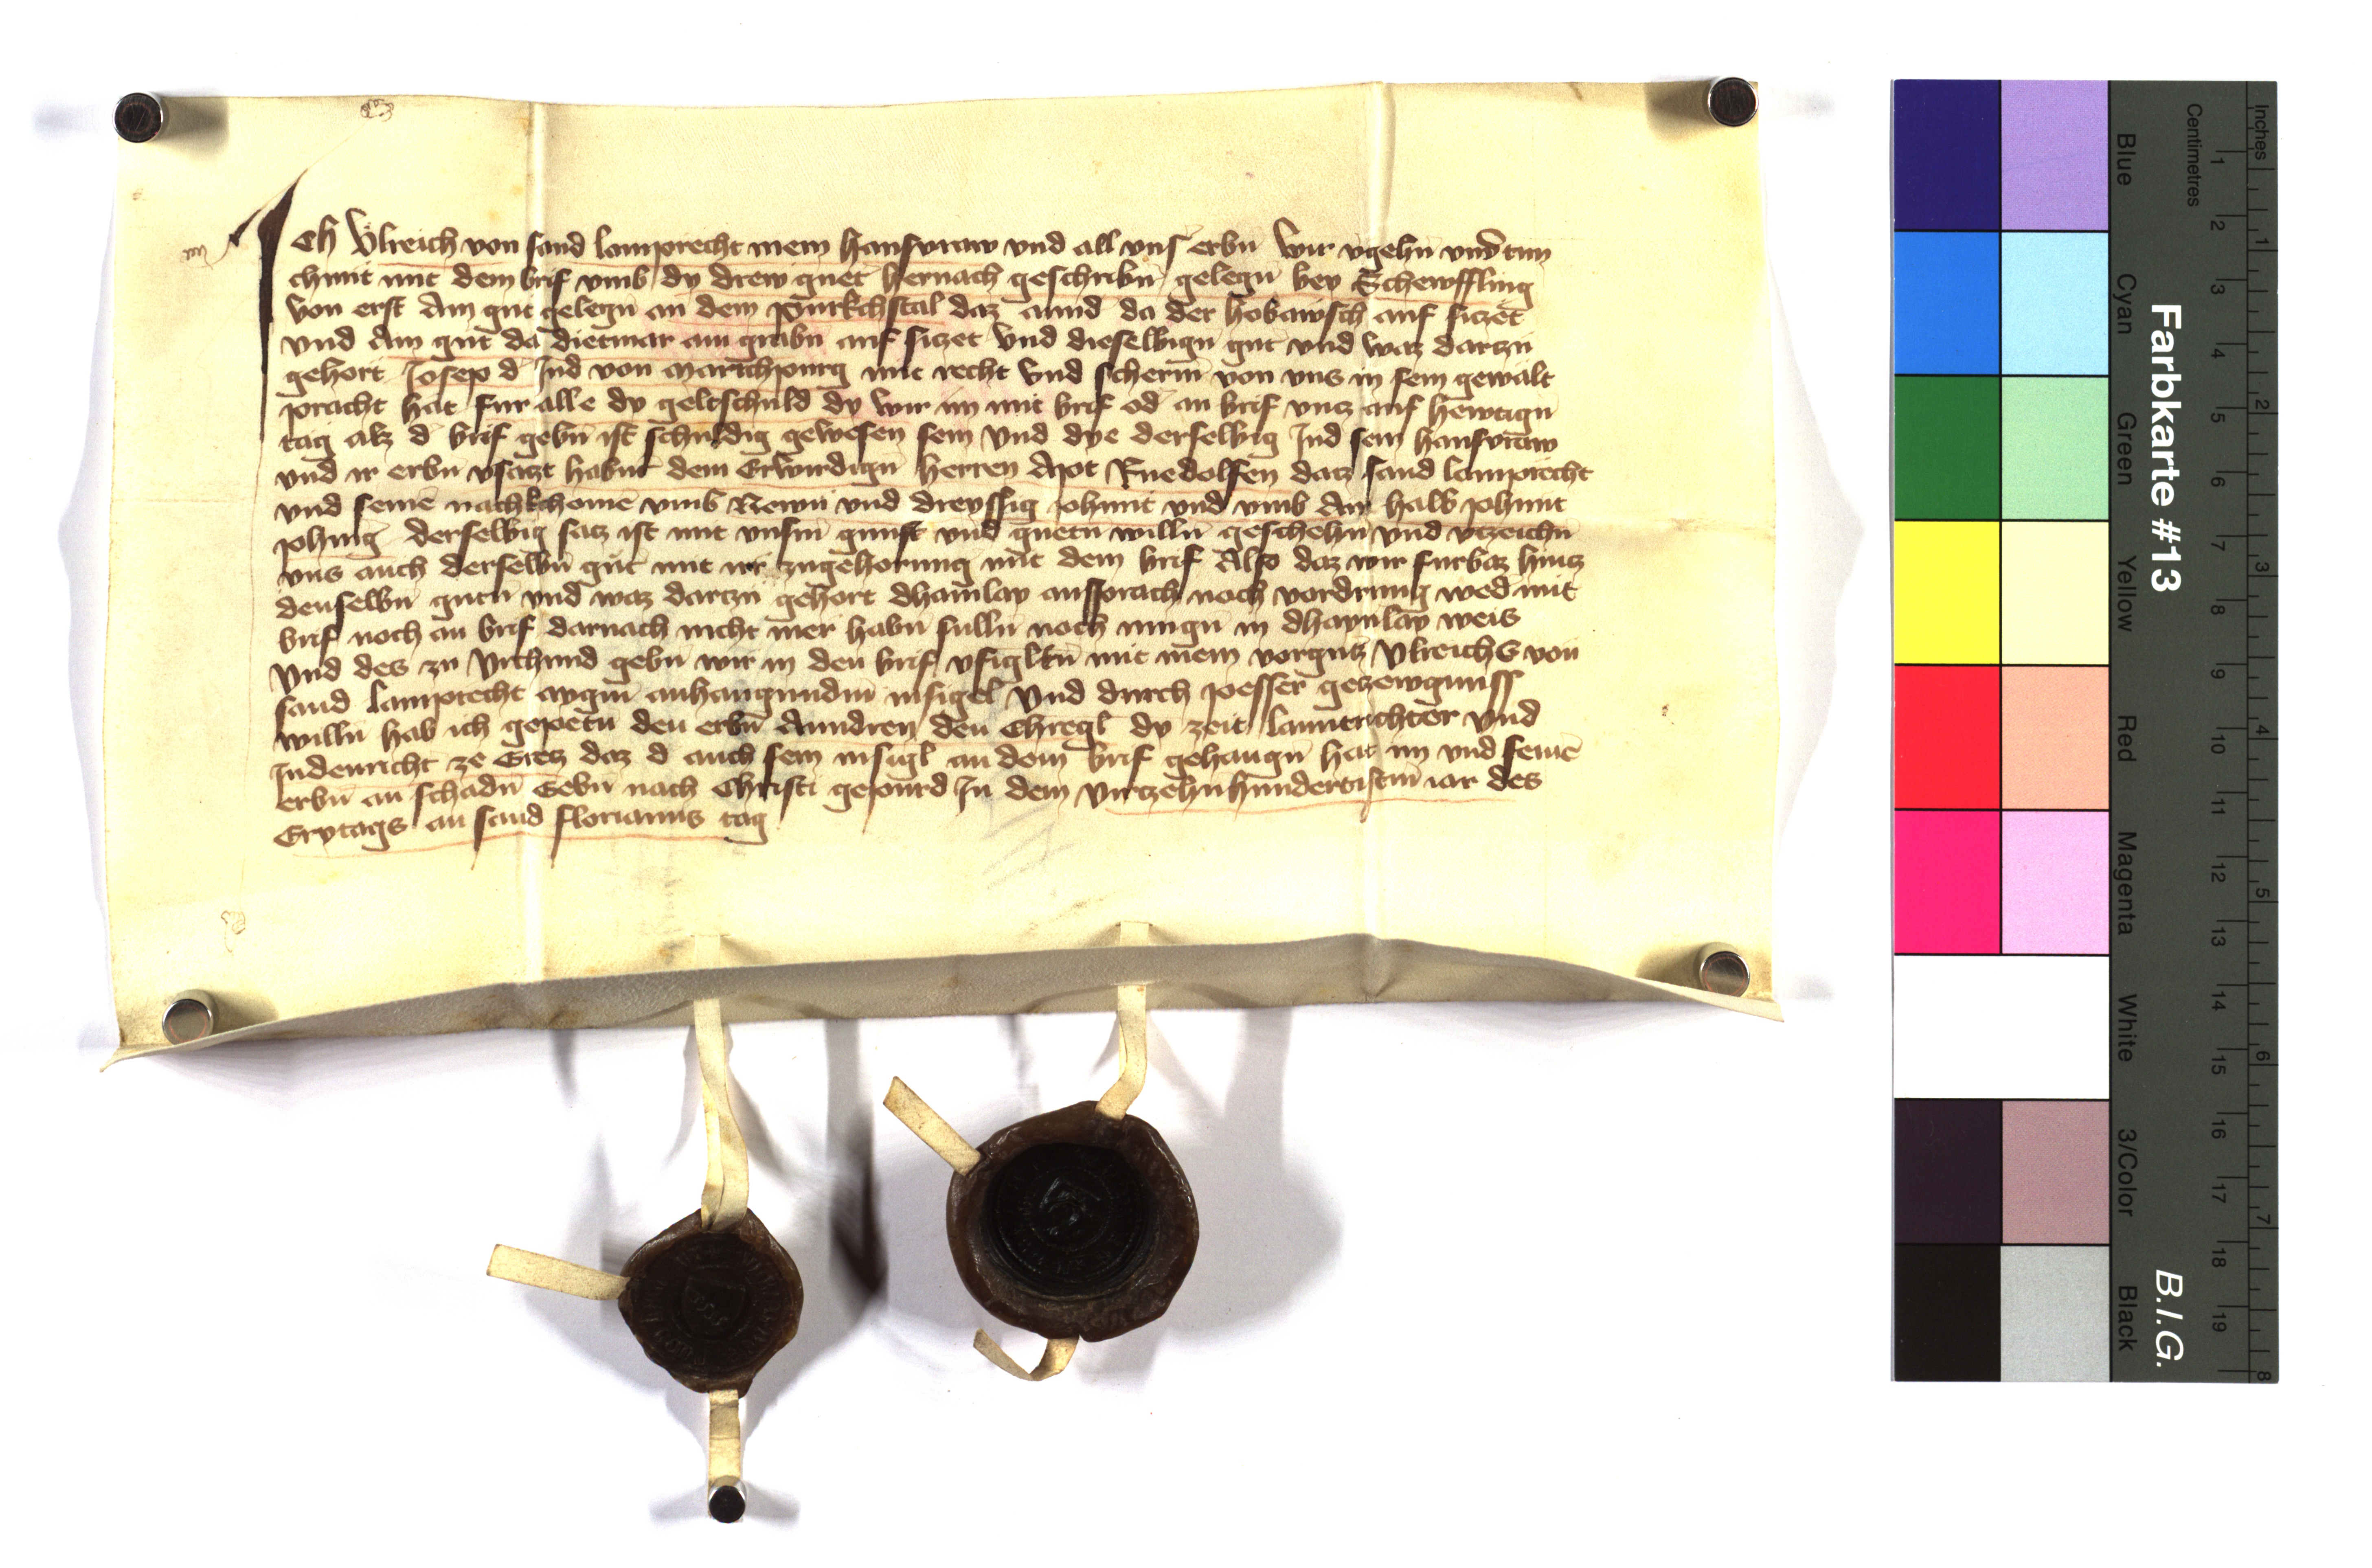 Ich Ulreich von sand lamprecht mein hausvraw vnd all vnser erbn wir vgehn vnd tun
chunt mit dem brif vmb dy drew guet hernach geschribn gelegn bey Schewffling
von erst Ain gut gelegn an dem Purkchstal daz annd da der hobawsch auf siczet
vnd Ain gut da dietmar am grabn auf siczet vnd dieselbign gut vnd waz darczu
gehort Josep d Jud von Marichpurg mit recht vnd scherm von vns in sein gewalt
pracht hat fur alle dy geltschuld dy wir im mit brif od an brif vncz auf hewtign
tag alz d brif gebn ist schuldig gewesen sein vnd dye derselbig Jud sein hausvraw
vnd ir erbn vsaczt habnt dem Erwirdign herren Apt Ruedolfen datz sand lamprecht
vnd seine nachkhome vmb Newn vnd dreyssig phunt vnd vmb Ain halb phunt
phnig derselbig sacz ist mit vnsm gunst vnd guetn willn geschehn vnd vczeichn
vns auch derselbn gut mit irr zugehorung mit dem brif Also daz wir furbaz hincz
denselbn gutn vnd waz darczu gehort dhainlay ansprach noch vordrung wed mit
brif noch an brif darnach nicht mer habn sulln noch mugn in dhaynlay weis
Vnd des zu vrchund gebn wir in den brif vsigltn mit mein vorgntz Vlreichs von
sand lamprecht aygm anhangundm insigel Vnd durch pesser gezewgnuss
willn hab ich gepetn den erbn Anndren den Chregl dy zeit lanntrichter vnd
Judenricht ze Gretz daz d auch sein insigl an dem brif gehangn hat im vnd seine
erbn an schadn Gebn nach Christi gepurd In dem virczehnhundertistm iar des
Erytags an sand florianns tag
Farbkarte #13
B.I.G.
Blue
Cyan
Green
Yellow
Red
Magenta
White
3/Color
Black
Centimetres
1 2 3 4 5 6 7 8 9 10 11 12 13 14 15 16 17 18 19
Inches
1 2 3 4 5 6 7 8